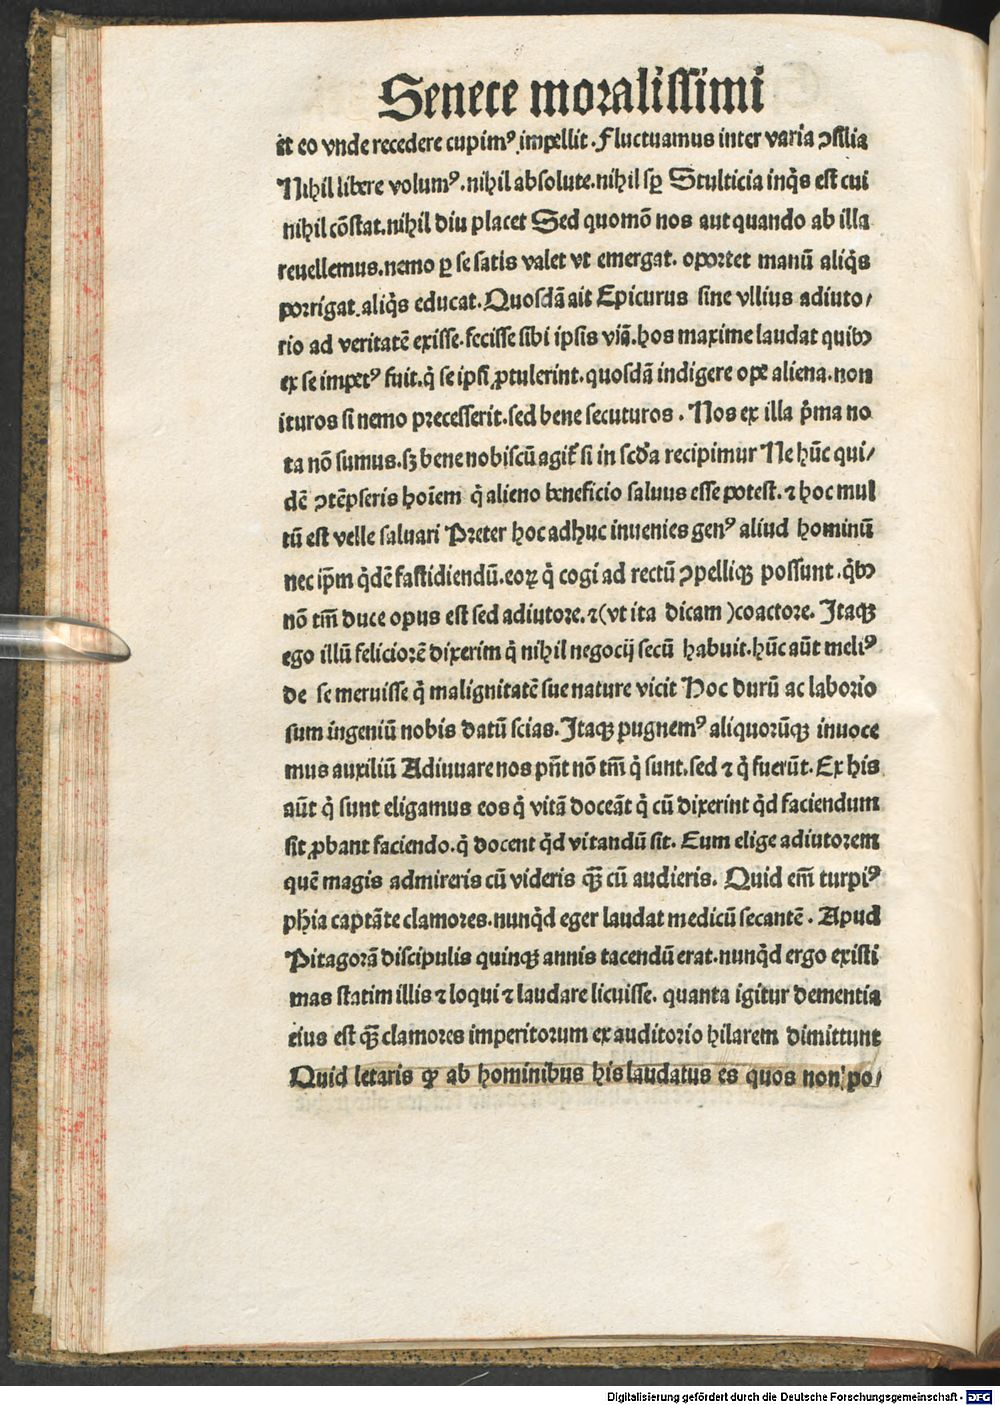 Senece moralissimi
it eo vnde recedere cupimꝰ impellit. Fluctuamus inter varia ↄsilia
Nihil libere volumꝰ. nihil absolute. nihil sꝑ Stulticia inq̇s est cui
nihil cōstat. nihil diu placet Sed quomō nos aut quando ab illa
reuellemus. nemo ꝑ se satis valet vt emergat. oportet manū aliq̇s
porrigat. aliq̇s educat. Quosdā ait Epicurus sine vllius adiuto/
rio ad veritatē exisse. fecisse sibi ipsis viā. hos maxime laudat quibꝫ
ex se impetꝰ fuit. q̇ se ipsi ꝓtulerint. quosdā indigere ope aliena. non
ituros si nemo precesserit. sed bene secuturos. Nos ex illa ṗma no
ta nō sumus. sꝫ bene nobiscū agit᷑ si in scd̄a recipimur Ne hūc qui/
dē ↄtēpseris hoīem q̇ alieno beneficio saluus esse potest. ⁊ hoc mul
tū est velle saluari Preter hoc adhuc inuenies genꝰ aliud hominū
nec ip̄m q̇dē fastidiendū. eoꝝ q̇ cogi ad rectū ↄpelliqꝫ possunt. q̇bꝫ
nō tm̄ duce opus est sed adiutore. ⁊ (vt ita dicam) coactore. Itaqꝫ
ego illū feliciorē dixerim q̇ nihil negocij secū habuit. hūc aūt meliꝰ
de se meruisse q̇ malignitatē sue nature vicit Hoc durū ac laborio
sum ingeniū nobis datū scias. Itaqꝫ pugnemꝰ aliquorūqꝫ inuoce
mus auxiliū Adiuuare nos pn̄t nō tm̄ q̇ sunt. sed ⁊ q̇ fuerūt. Ex his
aūt q̇ sunt eligamus eos q̇ vitā doceāt q̇ cū dixerint q̇d faciendum
sit ꝓbant faciendo. q̇ docent q̇d vitandū sit. Eum elige adiutorem
quē magis admireris cū videris qꝫ̄ cū audieris. Quid em̄ turpiꝰ
ph̄ia captāte clamores. nunq̇d eger laudat medicū secantē. Apud
Pitagorā discipulis quinqꝫ annis tacendū erat. nunq̇d ergo existi
mas statim illis ⁊ loqui ⁊ laudare licuisse. quanta igitur dementia
eius est qꝫ̄ clamores imperitorum ex auditorio hilarem dimittunt
Quid letaris ꝙ ab hominibus his laudatus es quos non po/
Digitalisierung gefördert durch die Deutsche Forschungsgemeinschaft - DFG